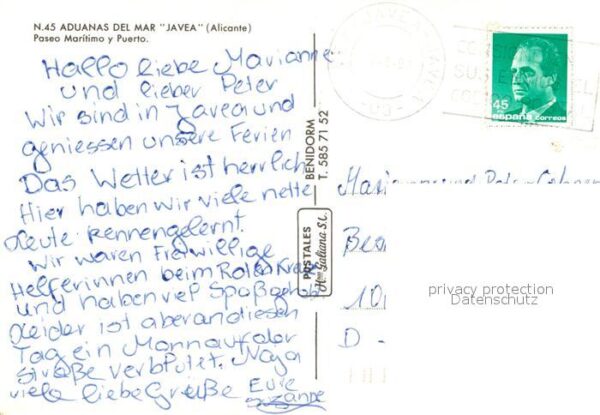 N.45 ADUANAS DEL MAR "JAVEA" (Alicante)
Paseo Marítimo y Puerto.
Hallo liebe Marianne
und lieber Peter
Wir sind in Javea und
geniessen unsere Ferien
Das Wetter ist herrlich
Hier haben wir viele nette
Leute kennengelernt.
Wir waren Freiwillige
Helferinnen beim Roten Kreuz
und haben viel Spaß gehabt
Leider ist aber an diesen
Tag ein Mann auf der
Straße verblutet. Naja
viele liebe Grüße Eure
BENIDORM
T. 585 71 52
POSTALES
Hnos Galiana S.L.
JAVEA
45
españa correos
Marianne und Peter
10
D -
privacy protection
Datenschutz